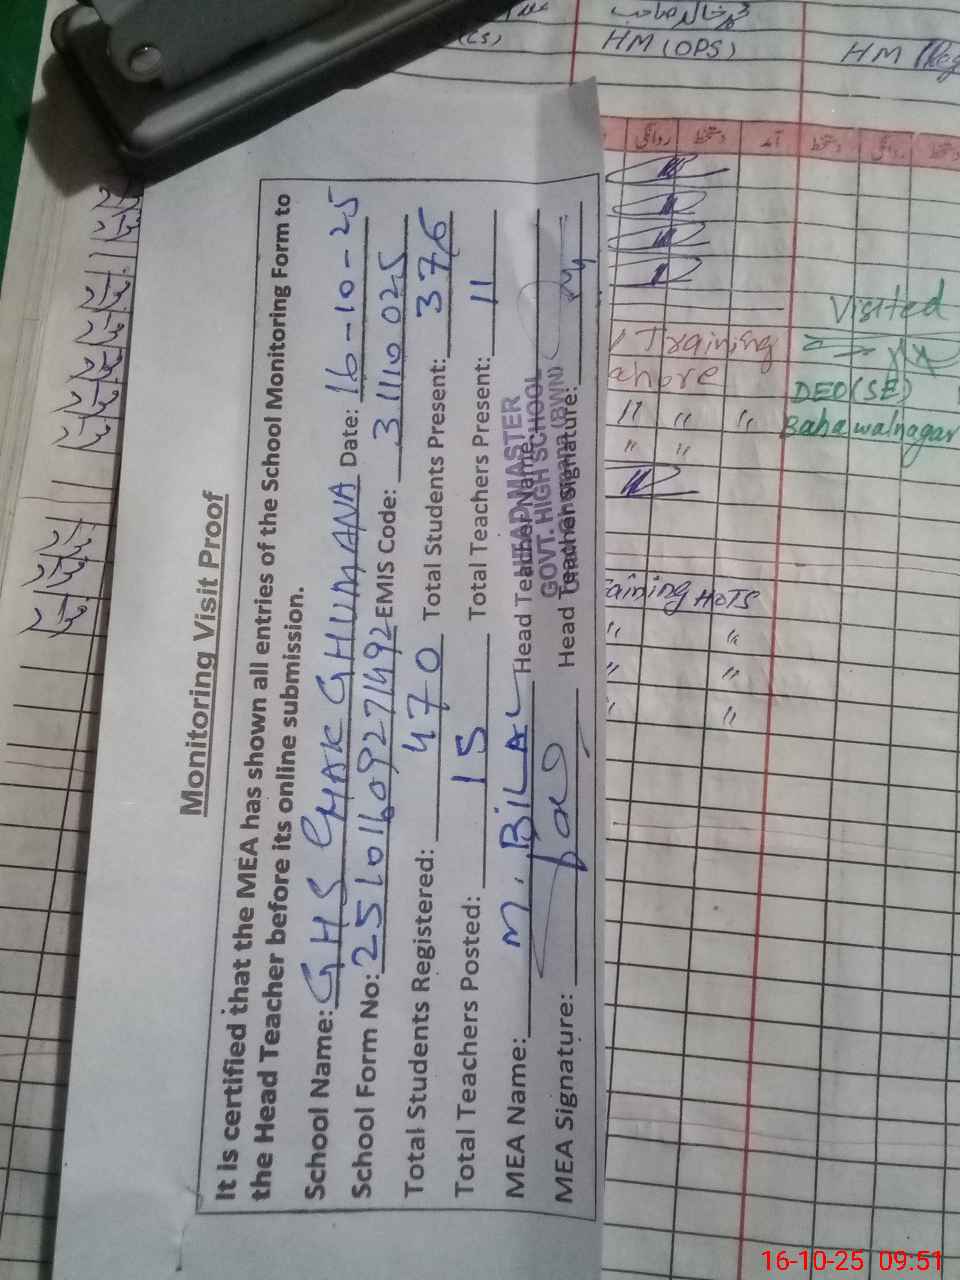 Monitoring Visit Proof
It is certified that the MEA has shown all entries of the School Monitoring Form to
the Head Teacher before its online submission.
School Name: GHS CHAK GHUMANA Date: 16-10-25
School Form No: 25101609271492 EMIS Code: 31110025
Total Students Registered: 470 Total Students Present: 376
Total Teachers Posted: 15 Total Teachers Present: 11
MEA Name: M. BiLAL Head Teacher Name:
HEADMASTER
GOVT. HIGH SCHOOL
(BWN)
MEA Signature: Head Teacher Signature:
HM (OPS)
HM
روانگی دستخط آمد دستخط روانگی دستخط
Visited
Training
DEO (SE)
Bahawalnagar
HOTS
16-10-25 09:51